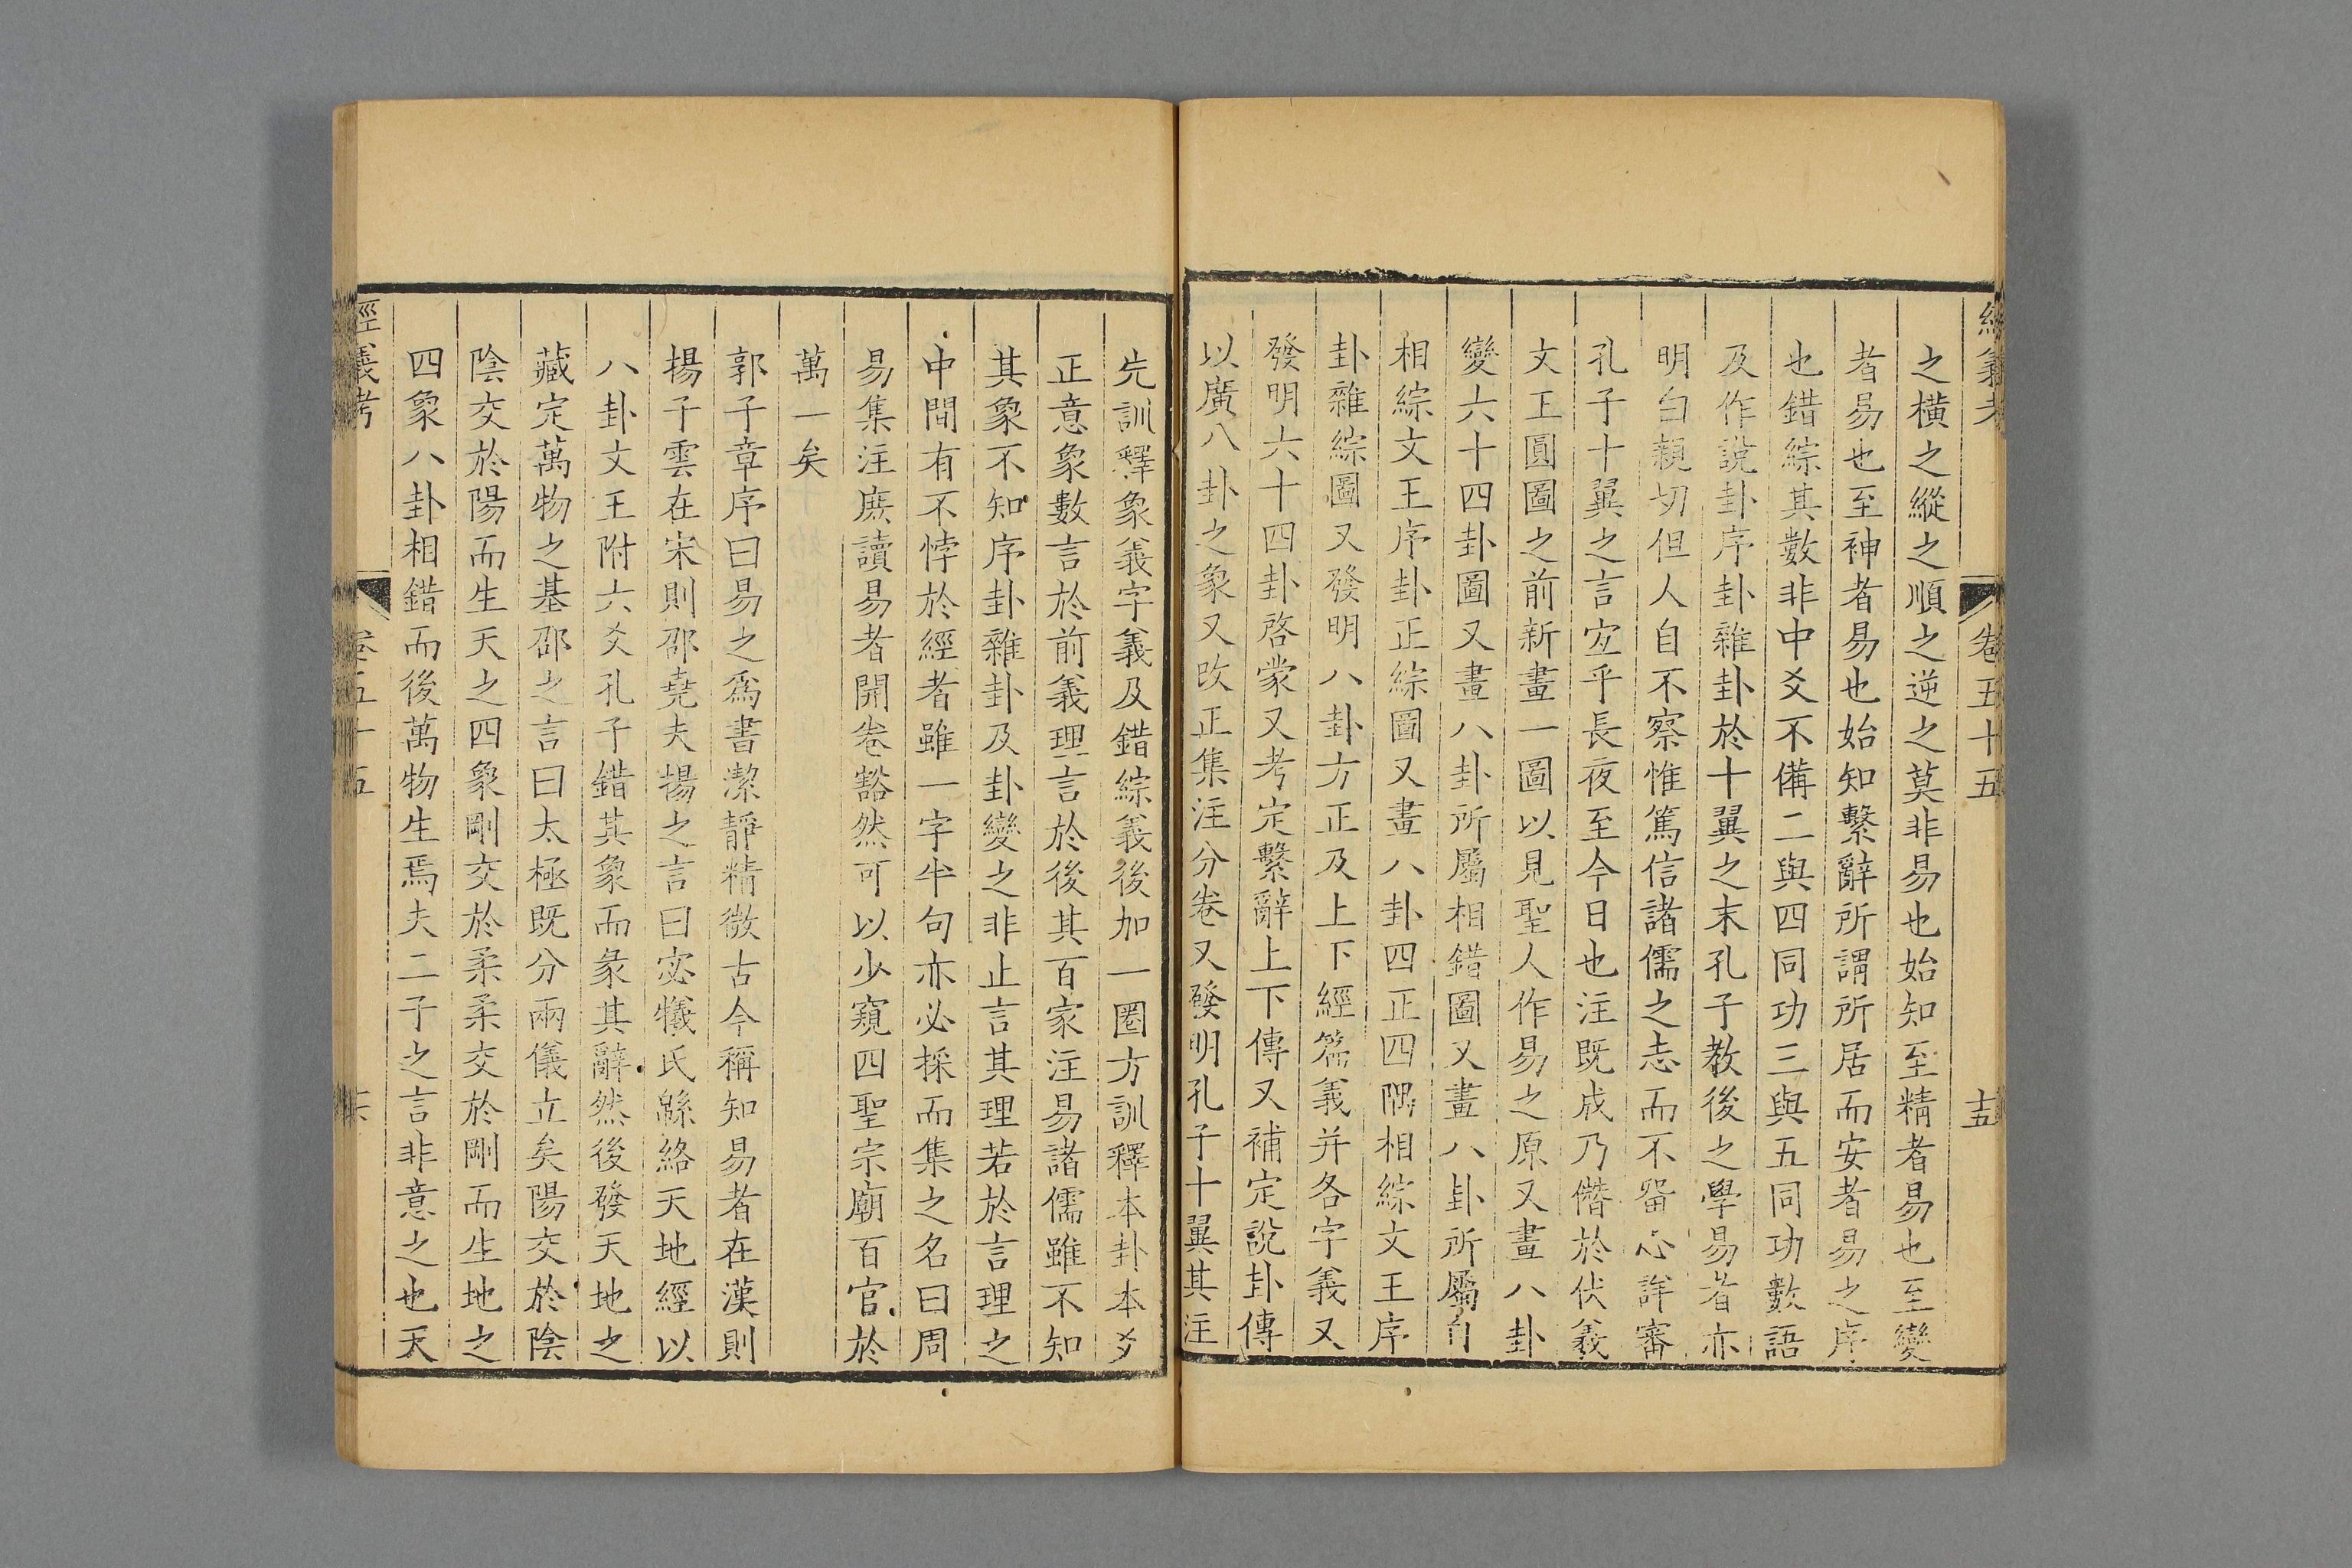 經義考 卷五十五 十五
之橫之縱之順之逆之莫非易也始知至精者易也至變
者易也至神者易也始知繫辭所謂所居而安者易之序
也錯綜其數非中爻不備二與四同功三與五同功數語
及作說卦序卦雜卦於十翼之末孔子教後之學易者亦
明白親切但人自不察惟篤信諸儒之志而不畱心詳審
孔子十翼之言宜乎長夜至今日也注既成乃僭於伏羲
文王圓圖之前新畫一圖以見聖人作易之原又畫八卦
變六十四卦圖又畫八卦所屬相錯圖又畫八卦所屬自
相綜文王序卦正綜圖又畫八卦四正四隅相綜文王序
卦雜綜圖又發明八卦方正及上下經篇義并各字義又
發明六十四卦啓蒙又考定繫辭上下傳又補定說卦傳
以廣八卦之象又改正集注分卷又發明孔子十翼其注
先訓釋象義字義及錯綜義後加一圈方訓釋本卦本爻
正意象數言於前義理言於後其百家注易諸儒雖不知
其象不知序卦雜卦及卦變之非止言其理若於言理之
中間有不悖於經者雖一字半句亦必採而集之名曰周
易集注庶讀易者開卷豁然可以少窺四聖宗廟百官於
萬一矣
郭子章序曰易之爲書潔靜精微古今稱知易者在漢則
揚子雲在宋則邵堯夫揚之言曰宓犧氏緜絡天地經以
八卦文王附六爻孔子錯其象而彖其辭然後發天地之
藏定萬物之基邵之言曰太極既分兩儀立矣陽交於陰
陰交於陽而生天之四象剛交於柔柔交於剛而生地之
四象八卦相錯而後萬物生焉夫二子之言非意之也天
經義考 卷五十五